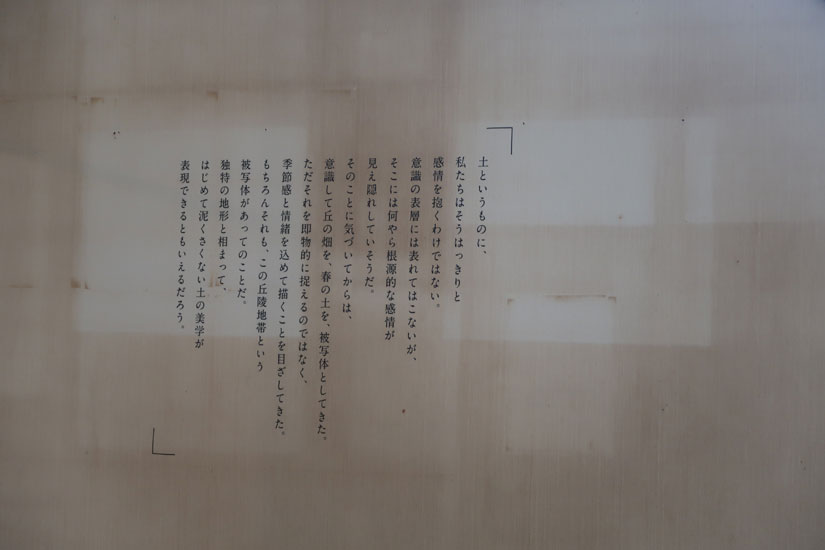 土というものに、
私たちはそうはっきりと
感情を抱くわけではない。
意識の表層には表れてはこないが、
そこには何やら根源的な感情が
見え隠れしていそうだ。
そのことに気づいてからは、
意識して丘の畑を、春の土を、被写体としてきた。
ただそれを即物的に捉えるのではなく、
季節感と情緒を込めて描くことを目ざしてきた。
もちろんそれも、この丘陵地帯という
被写体があってのことだ。
独特の地形と相まって、
はじめて泥くさくない土の美学が
表現できるともいえるだろう。